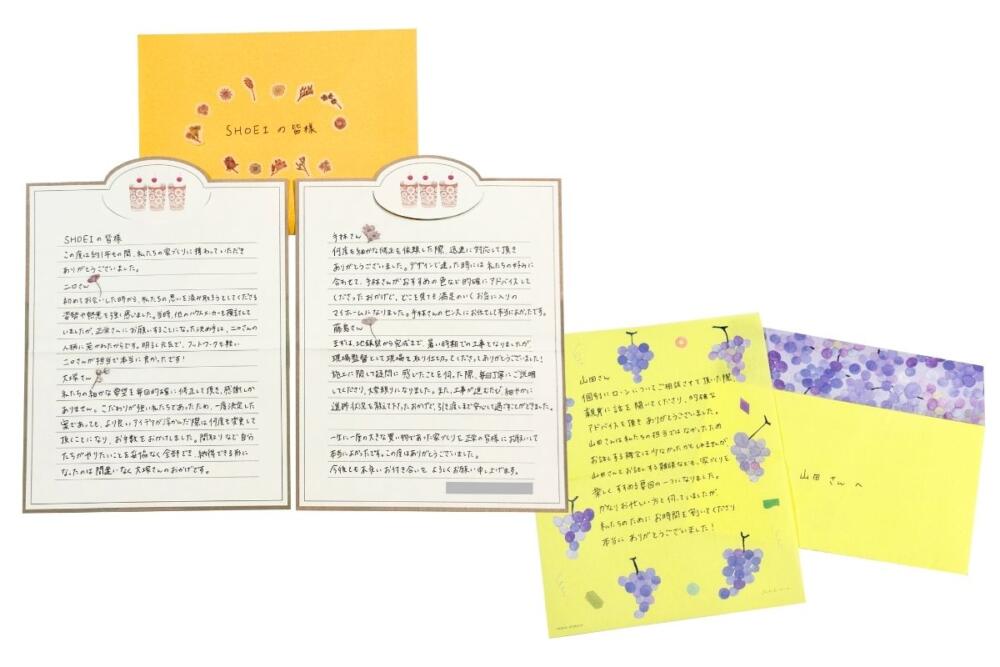 SHOEIの皆様
SHOEIの皆様
この度は約1年もの間、私たちの家づくりに携わっていただき
ありがとうございました。
二口さん
初めてお会いした時から、私たちの思いを汲み取ろうとしてくださる
姿勢や熱意を強く感じました。当時、他のハウスメーカーも検討して
いましたが、正栄さんにお願いすることになった決め手は、二口さんの
人柄に惹かれたからです。明るく元気で、フットワークも軽い
二口さんが担当で本当に良かったです!
大塚さん
私たちの細かな要望を毎回的確に修正して頂き、感謝しか
ありません。こだわりが強い私たちであったため、一度決定した
案であっても、より良いアイデアが浮かんだ際は何度も変更して
頂くことになり、お手数をおかけしました。間取りなど自分
たちがやりたいことを妥協なく全部でき、納得できる形に
なったのは間違いなく大塚さんのおかげです。
今林さん
何度も細かな修正を依頼した際、迅速に対応して頂き
ありがとうございました。デザインで迷った時には私たちの好みに
合わせて、今林さんがおすすめの色など的確にアドバイスして
くださったおかげで、どこを見ても満足のいくお気に入りの
マイホームになりました。今林さんのセンスにお任せして本当によかったです。
藤島さん
まずは、地鎮祭から完成まで、暑い時期での工事となりましたが
現場監督として現場を取り仕切ってくださってありがとうございました!
施工に関して疑問に感じたことを伺った際、毎回丁寧にご説明
してくださり、大変頼りになりました。また、工事が進むたび、細やかに
進捗状況を教えて下さったおかげで、引き渡しまで安心して過ごすことができました。
一生に一度の大きな買い物であった家づくりを正栄の皆様にお願いして
本当によかったです。この度はありがとうございました。
今後とも末永いお付き合いを、よろしくお願い申し上げます。
山田さん
個別にローンについてご相談させて頂いた際、
親身に話を聞いてくださり、的確な
アドバイスを頂きありがとうございました。
山田さんは私たちの担当ではなかったため
お話しする機会は少なかったかもしれませんが
山田さんとお話しする雑談なども、家づくりを
楽しくすすめる要因の一つになりました。
かなりお忙しい方と伺っていましたが、
私たちのためにお時間を割いてくださり
本当に ありがとうございました!
山田 さん へ